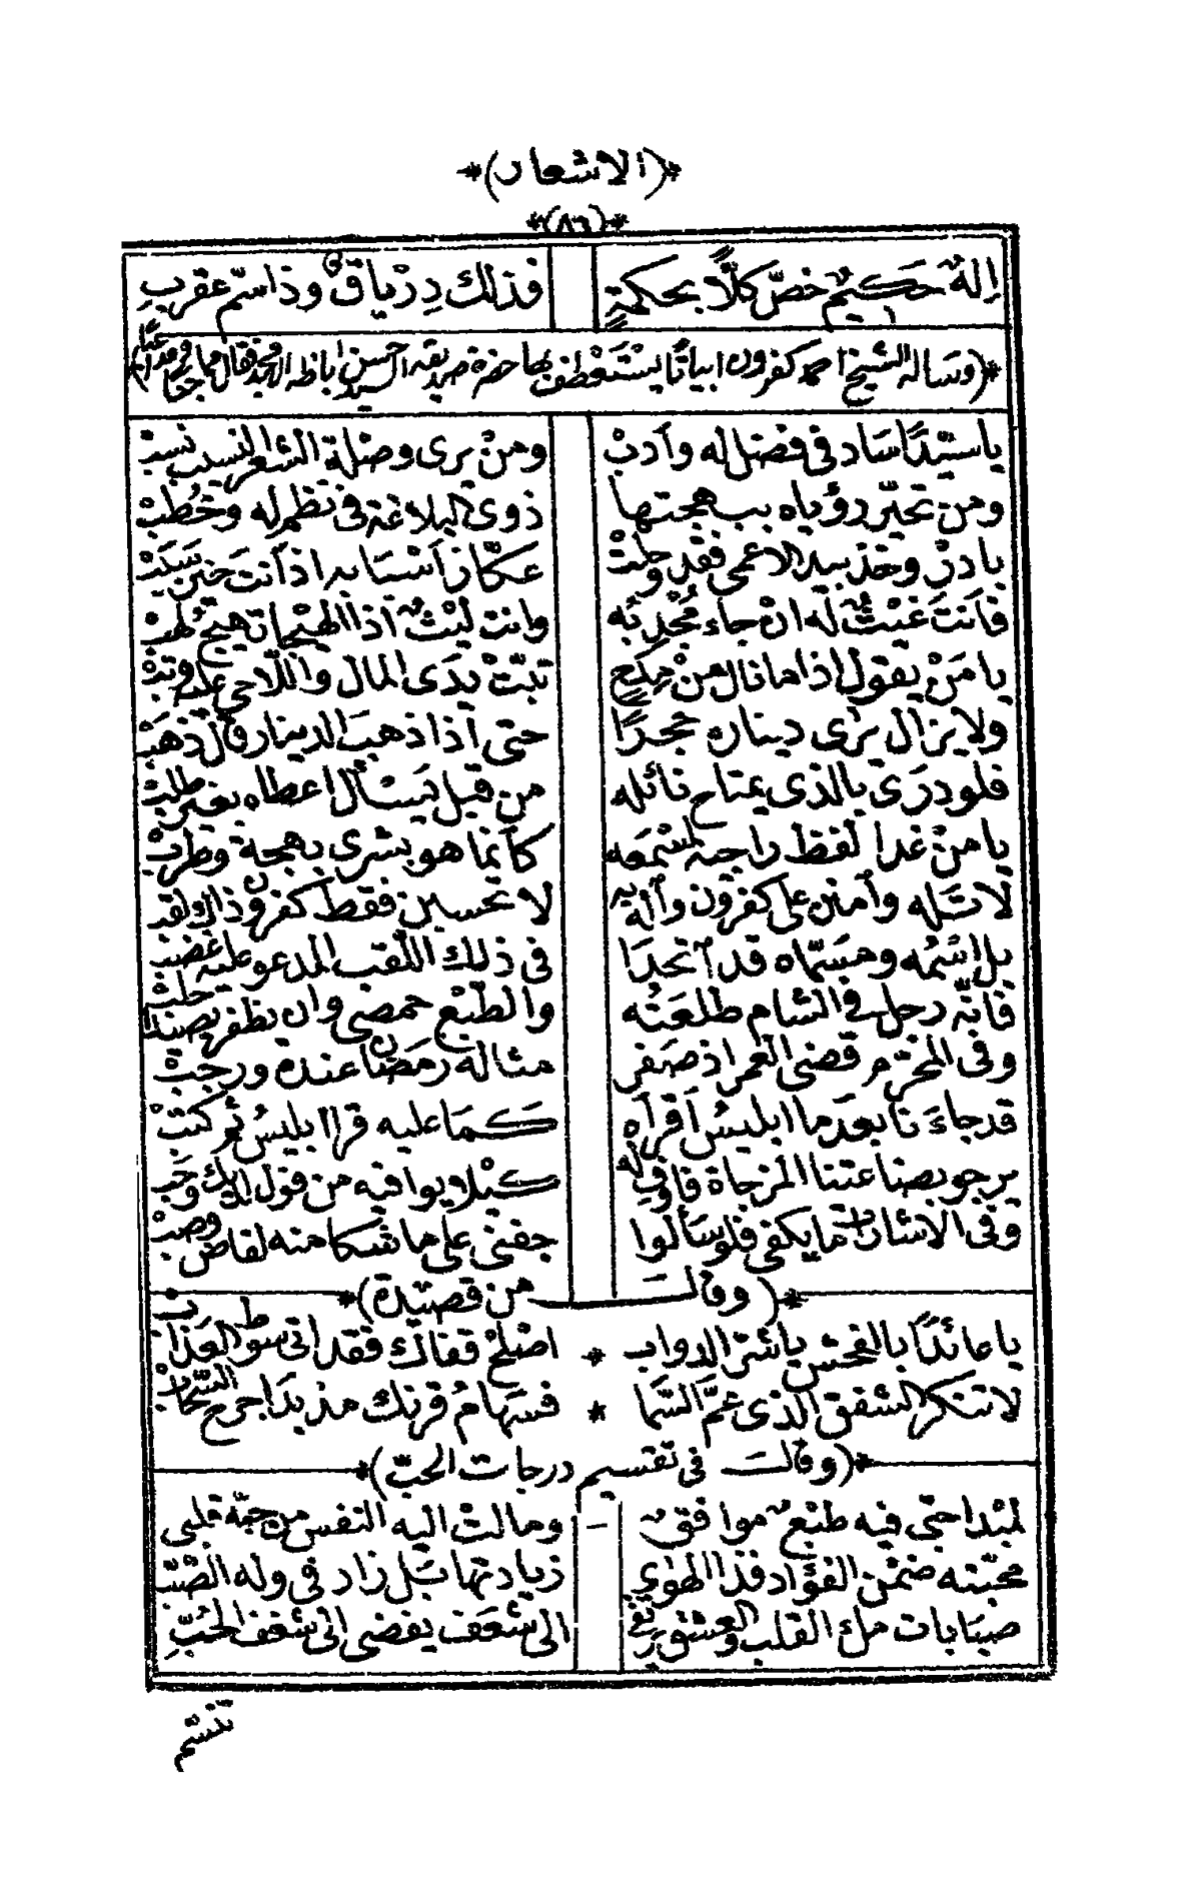 *(الاشعار)*
*(٨٦)*
اِلهٌ حَكِيمٌ خصّ كلًّا بحكمةٍ فذلك دِرْياقٌ وذا سمّ عقربِ
*(وسأله الشيخ احمد كفرون ابياتًا يستعطف بها حضرة صديقه السيد حسن اباظه فقال
يا سيّدًا ساد في فضل له وأدبْ ومنْ يرى وصْلة الشعر النسيب نسبْ
ومن تخيّر رؤياه ببهجتها ذوى البلاغة في نظم له وخُطبْ
بادرْ وخذ بيد الاعمى فقد وجلتْ عكّازَ أسبابه اذ أنت خير سببْ
فأنتَ غيثٌ له ان جاء مجْدِبُه وانت ليْثٌ اذا الهيجاء هيج لهبْ
يا مَنْ يقول اذا ما نال منْ مِدَحٍ تبّتْ يدَى المال واللاحى عليه وتبْ
ولا يزال يرى ديناره حجرًا حتى اذا ذهبَ الدينار قال ذهبْ
فلو دَرَى بالذى يمتاح نائله من قبل يَسْأل اعطاه بغير طلبْ
يا منْ غدا لفظ راجيه لمسْمعه كأنما هو بشرى بهجة وطربْ
لا تنْسه وأمنن على كفرون وأْله به لا تحسبن فقط كفرون ذاك لقبْ
بل اسْمُه ومسَمّاه قد اتّحدَا في ذلك اللّقب المدعو عليه غضبْ
فانّه رجل في الشام طلعَتُه والطّبْع حمصى وان يظفر بصيد حلبْ
وفى المحرّم قضى العمر اذ صفر مثاله رمضان عنده ورجبْ
قد جاءَنا بعدَما ابليسُ أقرأه كمَا عليه قرا ابليسُ ثم كتبْ
يرجو بضاعتنا المزجاة فاوفِ له كيْلا يوافيه من قول الديك وجبْ
وفى الاشارات ما يكفى فلو سألوا جفنى على ما شكا منه لفاض وصبْ
*(وقالــــ من قصيدة)*
يا عائدًا بالفحش يا شرّ الدواب * اصْلحْ قفاك فقد اتى سوط العذابْ
لا تنكر الشفق الذى عمَّ السّما * فسهامُ قرنك مذ بدَا جرح السّحابْ
*(وقالــــ في تقسيم درجات الحبّ)*
لمبْدا حتى فيه طبْعٌ موافقٌ ومالتْ اليه النفس من حبّه قلبى
محبّته ضمْن الفؤاد فذا الهوى زيادتها بَل زاد في وله الصّبّ
صبابات ملء القلب والعشق الى شعَف يفضى الى شغف الحُبِّ